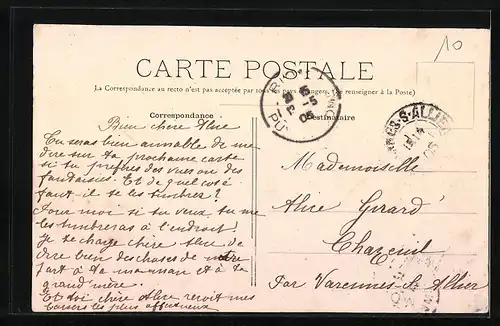 10
CARTE POSTALE
(La Correspondance au recto n'est pas acceptée par tous les pays étrangers. Se renseigner à la Poste)
Correspondance
Destinataire
Bien chère Alice
Tu seras bien aimable de me
dire sur ta prochaine carte
si tu préfères des vues ou des
fantaisies. Et de quel côté
faut-il te les timbrer?
Pour moi si tu veux tu me
les timbreras à l'endroit.
Je te charge chère Alice de
dire bien des choses de notre
part à ta maman et à ta
grand'mère.
Et toi chère Alice reçoit mes
baisers les plus affectueux
Mademoiselle
Alice Girard
Chazeuil
Par Varennes-s-Allier
PUY
5
05
S-ALLIER
05